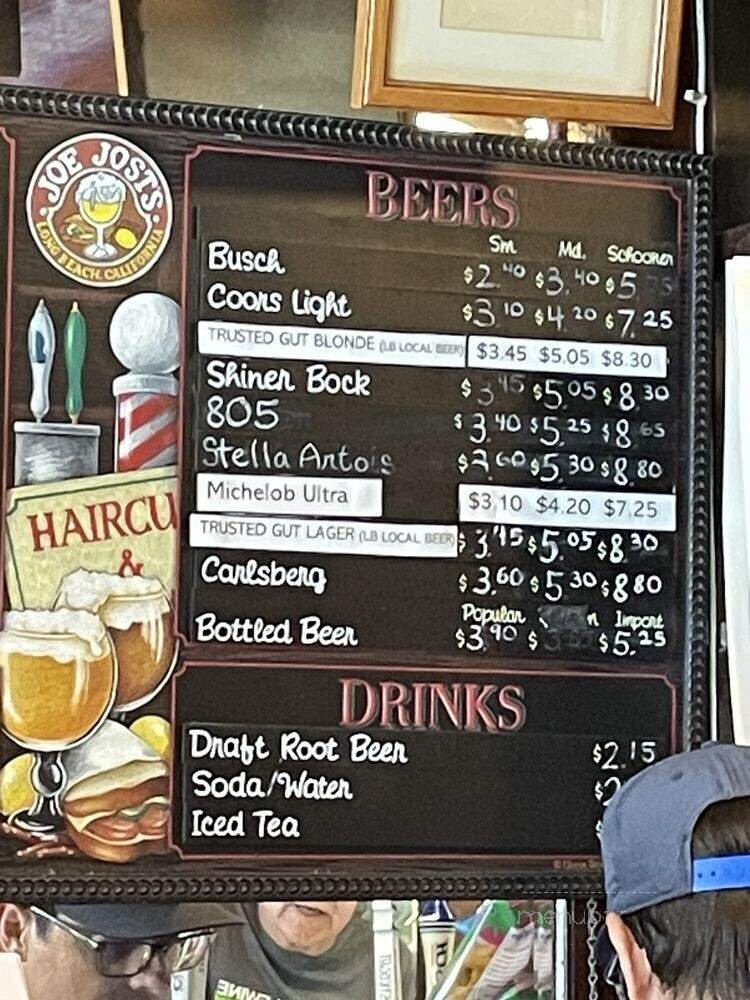 JOE JOST'S
LONG BEACH, CALIFORNIA
BEERS
Sm Md. Schooner
Busch $2.40 $3.40 $5
Coors Light $3.10 $4.20 $7.25
TRUSTED GUT BLONDE (LB LOCAL BEER) $3.45 $5.05 $8.30
Shiner Bock $3.45 $5.05 $8.30
805 $3.40 $5.25 $8.65
Stella Artois $3.60 $5.30 $8.80
Michelob Ultra $3.10 $4.20 $7.25
TRUSTED GUT LAGER (LB LOCAL BEER) $3.45 $5.05 $8.30
Carlsberg $3.60 $5.30 $8.80
Popular Import
Bottled Beer $3.90 $ $5.25
HAIRCU
&
DRINKS
Draft Root Beer $2.15
Soda/Water $2
Iced Tea $
menupix